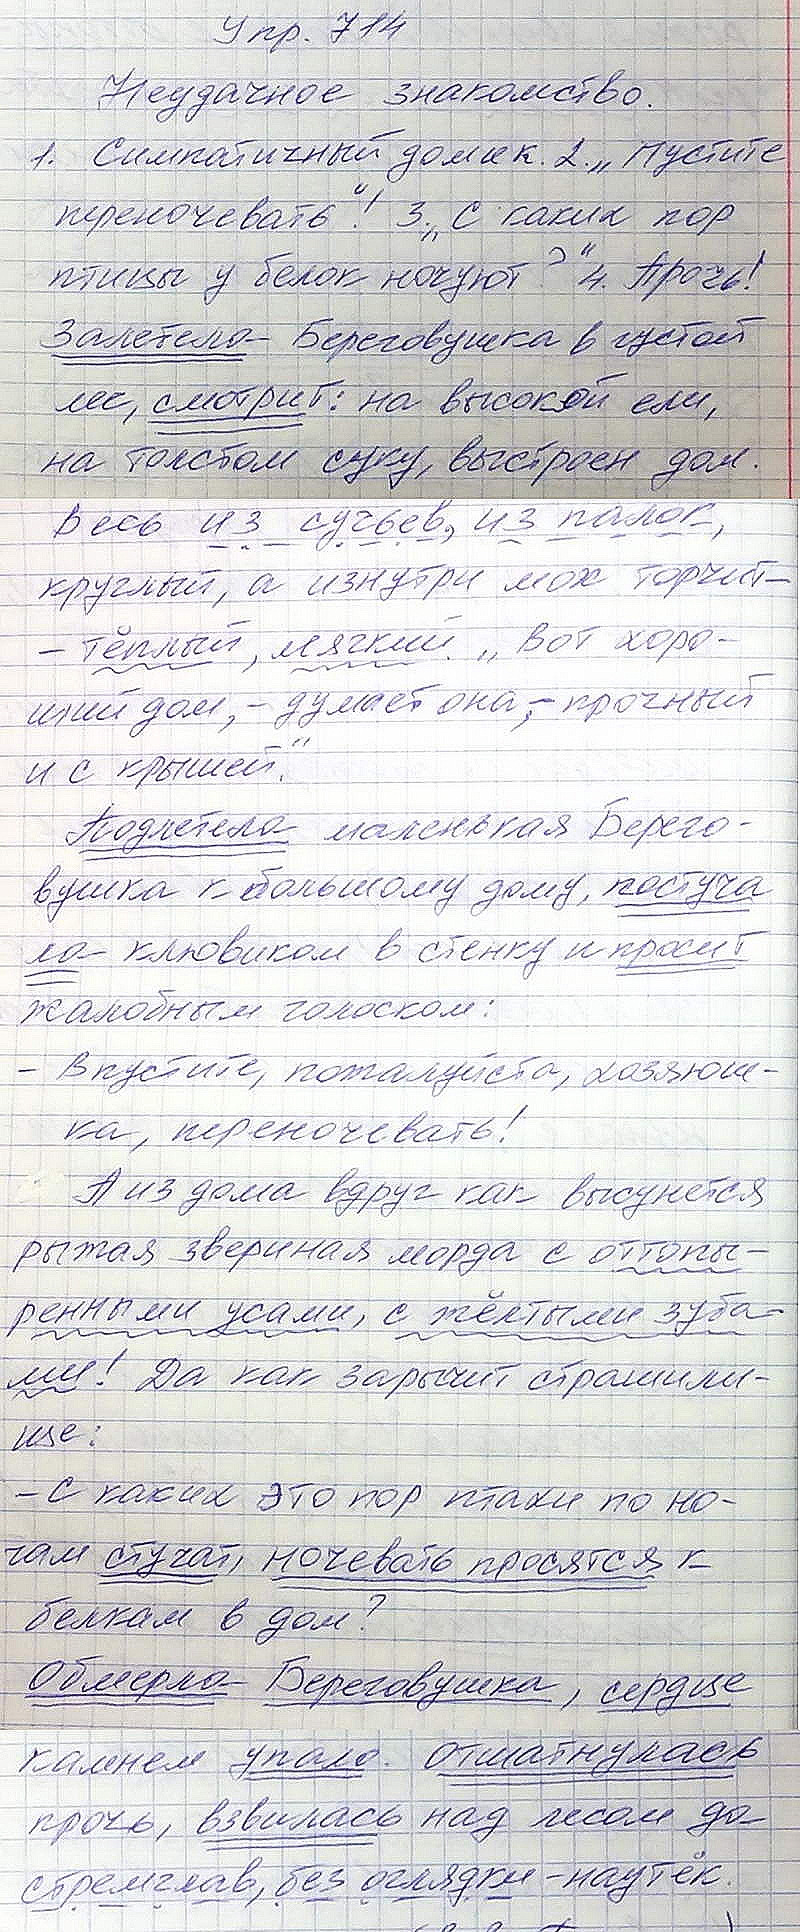 Упр. 714
Неудачное знакомство.
1. Симпатичный домик. 2. „Пустите
переночевать“! 3. „С каких пор
птицы у белок ночуют?“ 4. Прочь!
Залетела Береговушка в густой
лес, смотрит: на высокой ели,
на толстом суку, выстроен дом.
Весь из сучьев, из палок,
круглый, а изнутри мох торчит-
- тёплый, мягкий. „Вот хоро-
ший дом, - думает она, - прочный
и с крышей.“
Подлетела маленькая Берего-
вушка к большому дому, постуча
ла клювиком в стенку и просит
жалобным голоском:
- Впустите, пожалуйста, хозяюш-
ка, переночевать!
А из дома вдруг как высунется
рыжая звериная морда с оттопы-
ренными усами, с жёлтыми зуба-
ми! Да как зарычит страшили-
ще:
- С каких это пор птахи по но-
чам стучат, ночевать просятся к
белкам в дом?
Обмерла Береговушка, сердце
камнем упало. Отшатнулась
прочь, взвилась над лесом да
стремглав, без оглядки - наутёк.